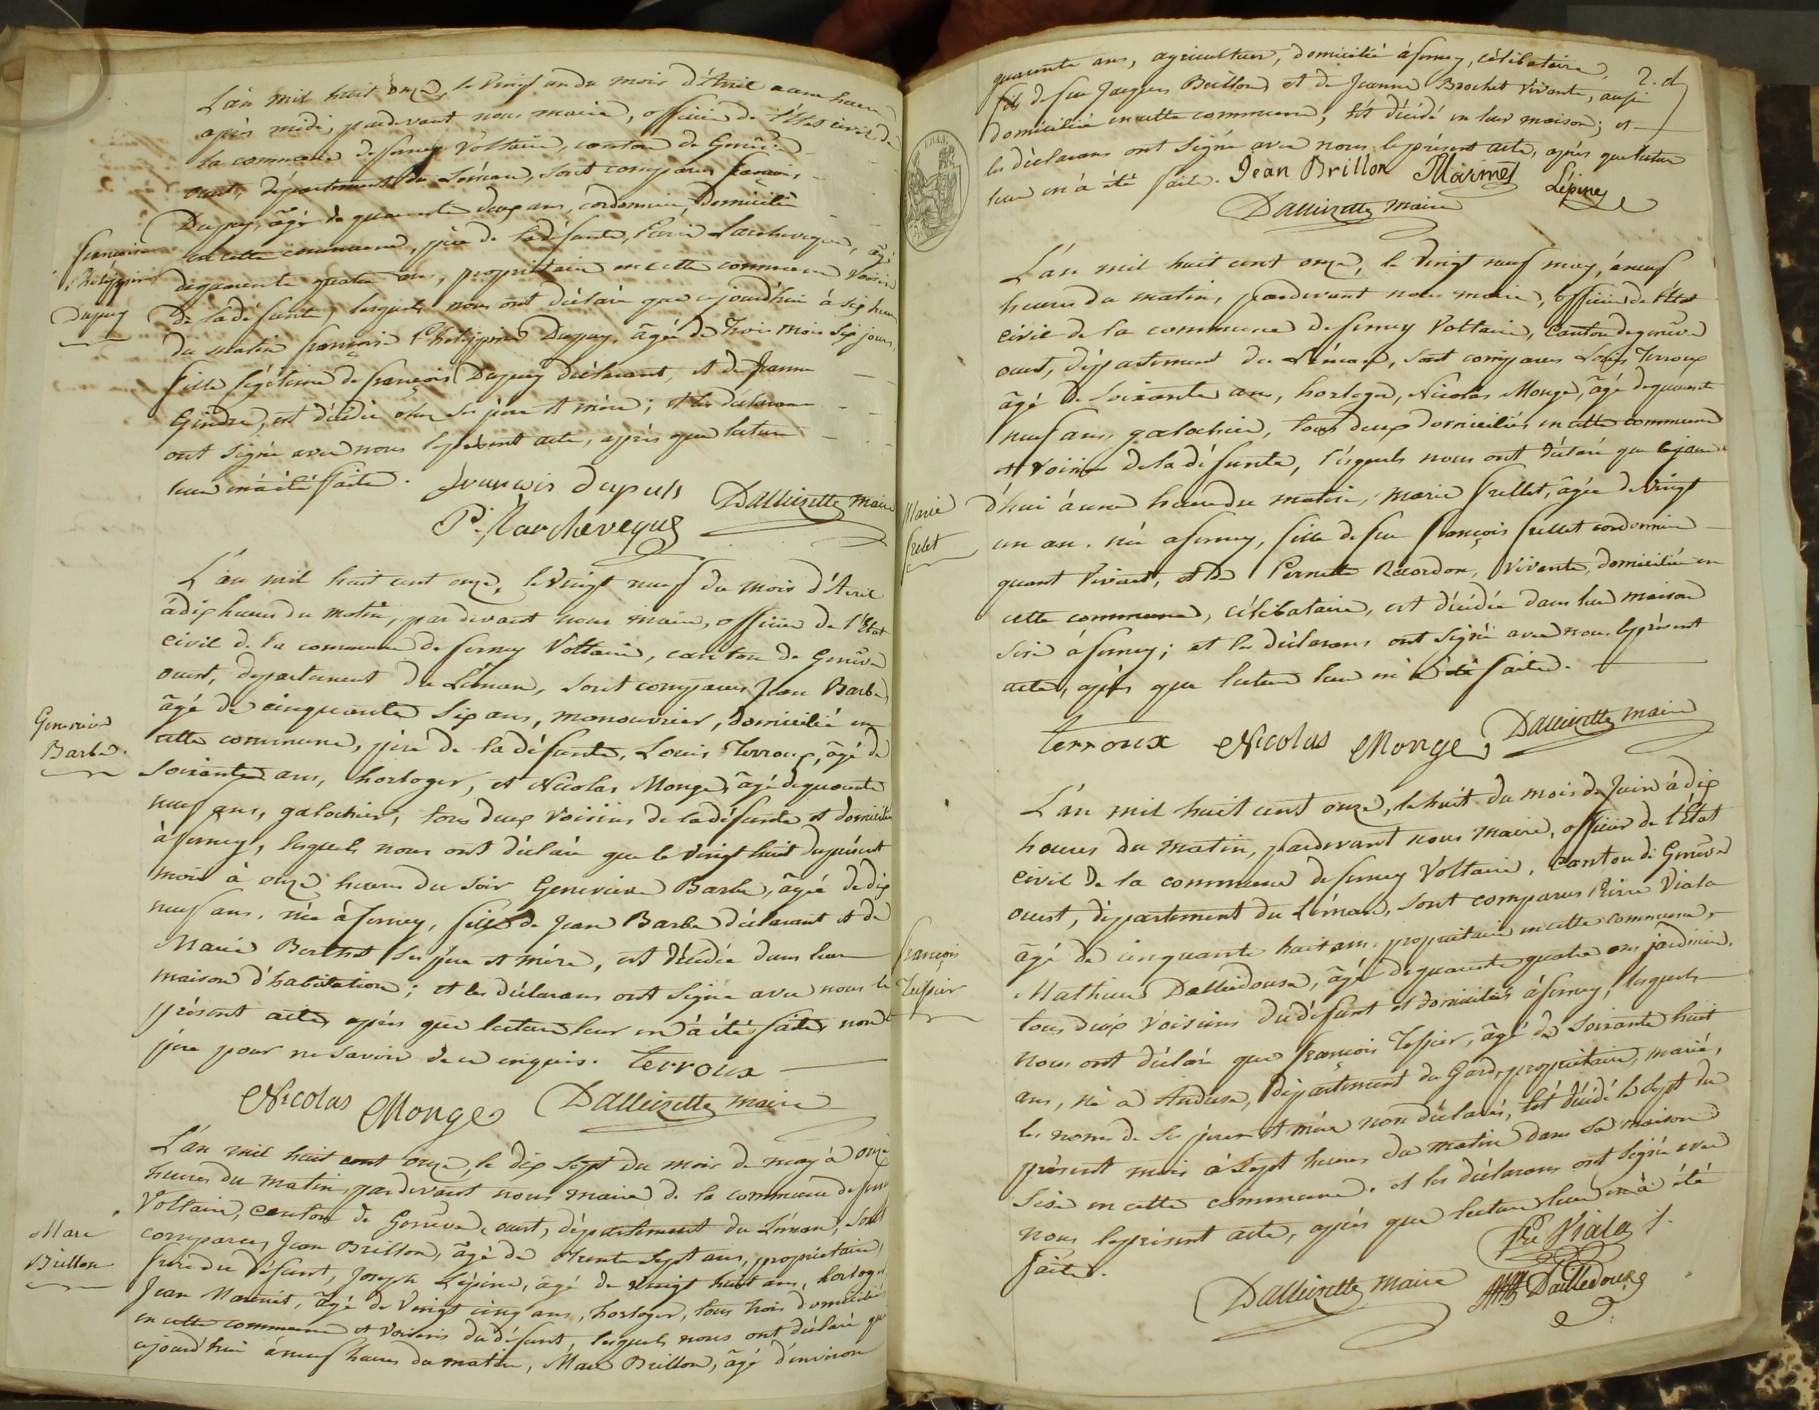 L'an mil huit cent onze, le vingt un du mois d'Avril à une heure
après midi, pardevant nous maire, officier de l'État civil de
la commune de ferney Voltaire, canton de Genêve
ouest, département du Léman, sont comparus françois
Dupuy, âgé de quarante deux ans, cordonnier, domicilié
en cette commune, père de la défunte, Pierre Larchevêque, âgé
françoise
Philippine
Dupuy
de quarante quatre ans, propriétaire en cette commune voisin
de la défunte, lesquels nous ont déclaré que cejourd'hui à six heures
du matin françoise Philippine Dupuy, âgée de trois mois six jours,
fille légitime de françois Dupuy déclarant, et de Jeanne
Gindre, est décédée chez ses père et mère; et les déclarans
ont signé avec nous le présent acte, après que lecture
leur en a été faite.
françois dupuis
Dallizette maire
P. Larcheveque
L'an mil huit cent onze, le vingt neuf du mois d'Avril
à dix heures du matin, pardevant nous maire, officier de l'État
civil de la commune de ferney Voltaire, canton de Genêve
ouest, département du Léman, sont comparus Jean Barbe
âgé de cinquante six ans, manouvrier, domicilié en
Genevieve
Barbe.
cette commune, père de la défunte, Louis Terroux, âgé de
soixante ans, horloger, et Nicolas Monge, âgé de quarante
neuf ans, galochier, tous deux voisins de la défunte et domiciliés
à ferney, lesquels nous ont déclaré que le vingt huit du présent
mois à onze heures du soir Genevieve Barbe, âgée de dix
neuf ans, née à ferney, fille de Jean Barbe déclarant et de
Marie Berthet ses père et mère, est décédée dans leur
maison d'habitation; et les déclarans ont signé avec nous le
présent acte, après que lecture leur en a été faite, non le
père pour ne savoir de ce enquis.
Terroux
Nicolas Monge
Dallizette maire
L'an mil huit cent onze, le dix sept du mois de may à onze
heures du matin, pardevant nous maire de la commune de ferney
Voltaire, canton de Genêve ouest, département du Léman, sont
comparus, Jean Brillon, âgé de trente sept ans, propriétaire,
Marc
Brillon
frère du défunt, Joseph Lépine, âgé de vingt huit ans, horloger,
Jean Marmet, âgé de vingt cinq ans, horloger, tous trois domiciliés
en cette commune et voisins du défunt, lesquels nous ont déclaré que
cejourd'hui à neuf heures du matin, Marc Brillon, âgé d'environ
quarante ans, agriculteur, domicilié à ferney, célibataire,
fils de feu Jacques Brillon et de Jeanne Brochet vivante, aussi
domiciliée en cette commune, est décédé en leur maison; et
les déclarans ont signé avec nous le présent acte, après que lecture
leur en a été faite.
Jean Brillon
JMarmet
Lépine
Dallizette maire
L'an mil huit cent onze, le vingt neuf may, à neuf
heures du matin, pardevant nous maire, officier de l'État
civil de la commune de ferney Voltaire, canton de genêve
ouest, département du Léman, sont comparus Louis Terroux
âgé de soixante ans, horloger, Nicolas Monge, âgé de quarante
neuf ans, galochier, tous deux domiciliés en cette commune
et voisins de la défunte, lesquels nous ont déclaré que cejour
Marie
frelet
d'hui à une heure du matin, Marie frillet, âgée de vingt
un an, née à ferney, fille de feu françois frillet cordonnier
quand vivait, et de Pernette Recordon, vivante, domiciliée en
cette commune, célibataire, est décédée dans leur maison
sise à ferney; et les déclarans ont signé avec nous le présent
acte, après que lecture leur en a été faite.
Terroux
Nicolas Monge
Dallizette maire
L'an mil huit cent onze, le huit du mois de Juin à dix
heures du matin, pardevant nous maire, officier de l'État
civil de la commune de ferney Voltaire, canton de Genêve
ouest, département du Léman, sont comparus Pierre Viala
âgé de cinquante huit ans, propriétaire en cette commune,
françois
Tessier
Mathieu Dalledouse, âgé de quarante quatre ans jardinier,
tous deux voisins du défunt et domiciliés à ferney, lesquels
nous ont déclaré que françois Tessier, âgé de soixante huit
ans, né à Anduse, département du Gard, propriétaire, marié,
les noms de ses père et mère non déclarés, est décédé le sept du
présent mois à sept heures du matin dans sa maison
sise en cette commune. et les déclarans ont signé avec
nous le présent acte, après que lecture leur en a été
faite.
Pre Viala
Dallizette maire
Dailledouze